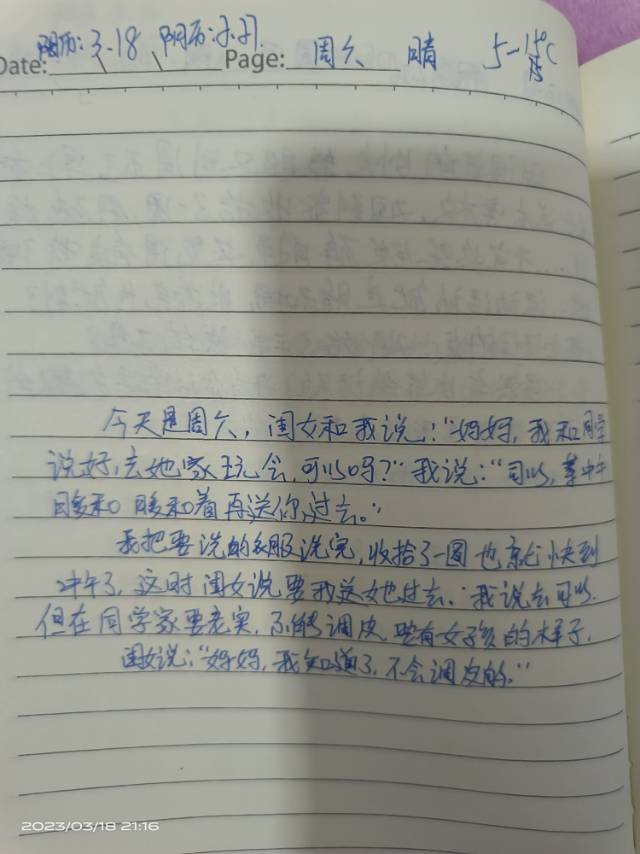 阳历:3-18 阴历:2.27
Date: Page: 周六 晴 5-15℃
今天是周六,闺女和我说:“妈妈,我和同学
说好,去她家玩会,可以吗?”我说:“可以,等中午
暖和暖和着再送你过去。”
我把要洗的衣服洗完,收拾了一圈也就快到
中午了,这时闺女说要我送她过去。我说去可以,
但在同学家要老实,不能调皮,要有女孩的样子,
闺女说:“妈妈,我知道了,不会调皮的。”
2023/03/18 21:16